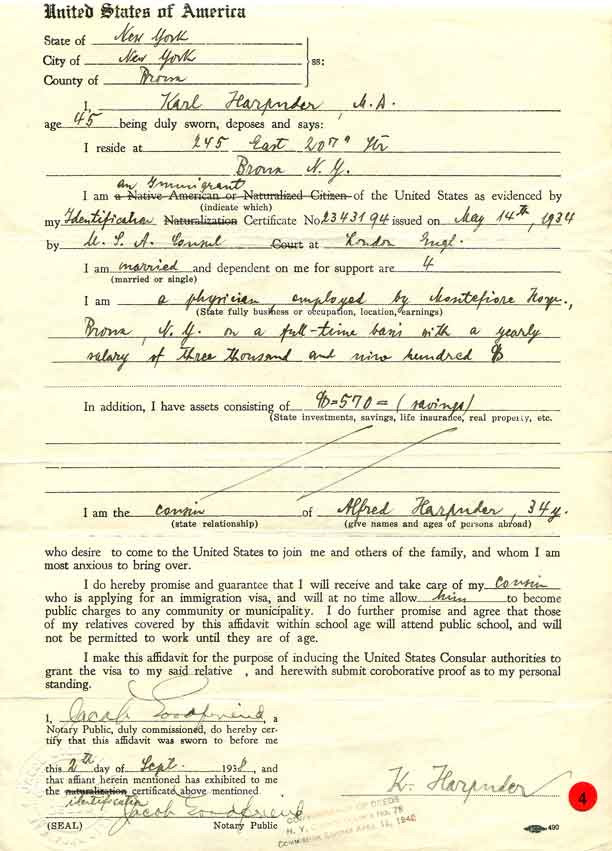 United States of America
State of New York
City of New York } ss:
County of Bronx
I, Karl Harpuder, M.D.
age 45 being duly sworn, deposes and says:
I reside at 245 East 207th Str
Bronx N.Y.
an Immigrant
I am a Native American or Naturalized Citizen of the United States as evidenced by
(indicate which)
my Identification Naturalization Certificate No 2343194 issued on May 14th, 1934
by U. S. A. Consul Court at London Engl.
I am married and dependent on me for support are 4
(married or single)
I am a physician, employed by Montefiore Hosp.,
(State fully business or occupation, location, earnings)
Bronx, N.Y. on a full-time basis with a yearly
salary of three thousand and nine hundred $
In addition, I have assets consisting of $=570=(savings)
(State investments, savings, life insurance, real property, etc.
I am the cousin of Alfred Harpuder, 34 y.
(state relationship) (give names and ages of persons abroad)
who desire to come to the United States to join me and others of the family, and whom I am
most anxious to bring over.
I do hereby promise and guarantee that I will receive and take care of my cousin
who is applying for an immigration visa, and will at no time allow him to become
public charges to any community or municipality. I do further promise and agree that those
of my relatives covered by this affidavit within school age will attend public school, and will
not be permitted to work until they are of age.
I make this affidavit for the purpose of inducing the United States Consular authorities to
grant the visa to my said relative , and herewith submit coroborative proof as to my personal
standing.
I, Jacob Goodfriend, a
Notary Public, duly commissioned, do hereby cer-
tify that this affidavit was sworn to before me
this 2th day of Sept. 1938, and
that affiant herein mentioned has exhibited to me
the naturalization certificate above mentioned
identification
Jacob Goodfriend
(SEAL) Notary Public
K. Harpuder
4
OF DEEDS
N. Y. No. 78
COMMISSION EXPIRES APRIL 12, 1940
490